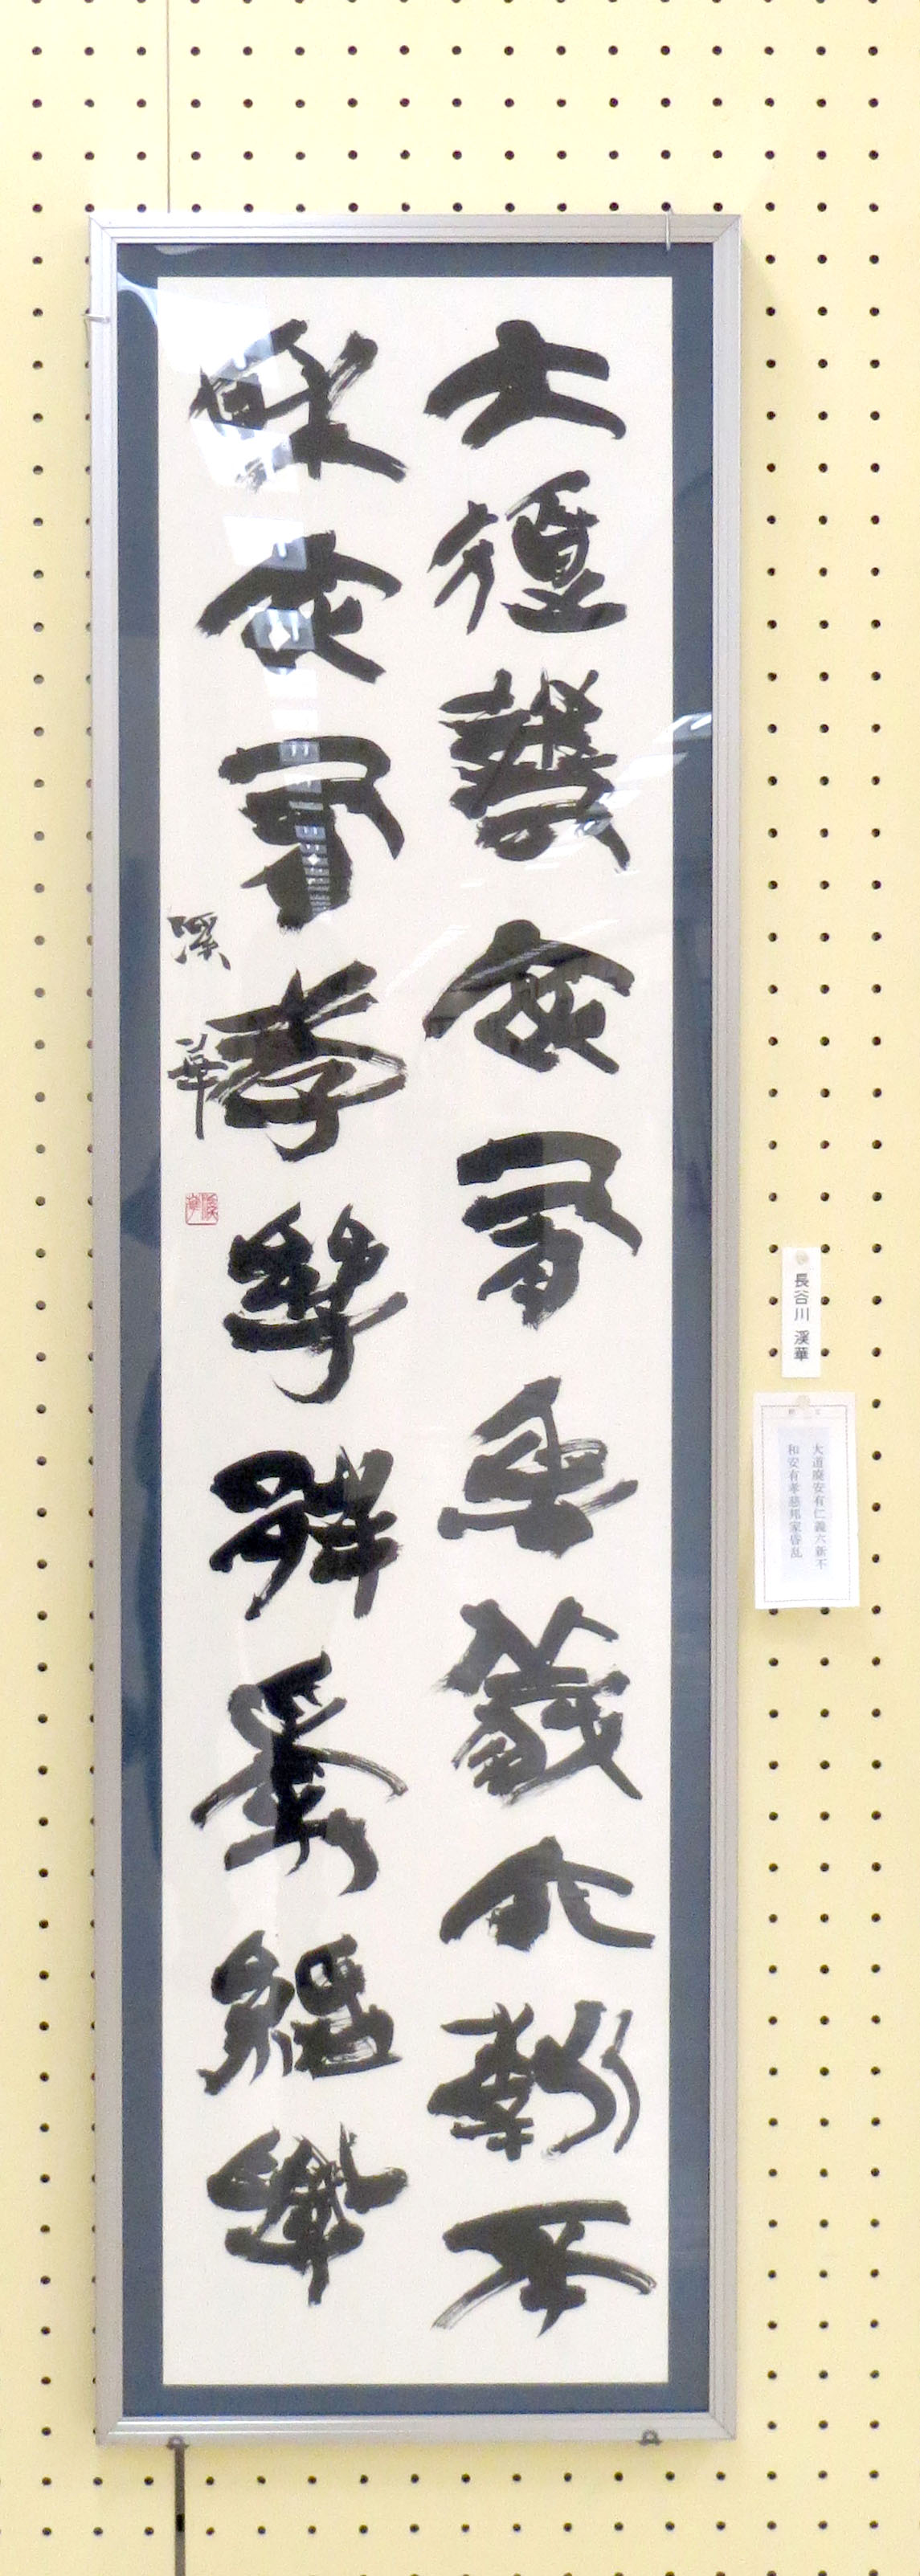 大道廢安有仁義六新不
和安有孝慈邦家昏乱
溪華
長谷川 溪華
大道廢安有仁義六新不
和安有孝慈邦家昏乱